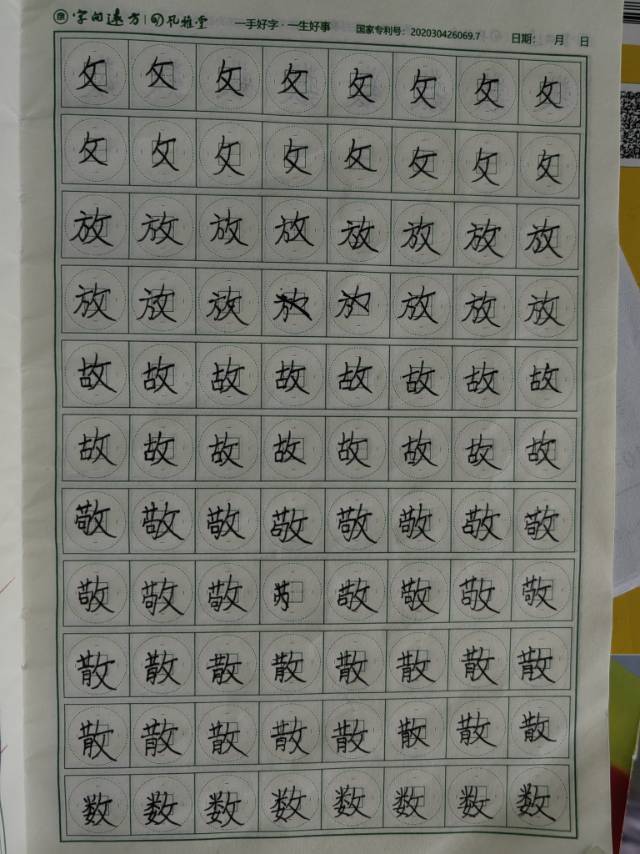 字的远方 孔雅堂 一手好字·一生好事 国家专利号：202030426069.7 日期： 月 日
攵 攵 攵 攵 攵 攵 攵 攵
攵 攵 攵 攵 攵 攵 攵 攵
放 放 放 放 放 放 放 放
放 放 放 放 放 放 放
故 故 故 故 故 故 故 故
故 故 故 故 故 故 故 故
敬 敬 敬 敬 敬 敬 敬 敬
敬 敬 敬 敬 敬 敬 敬
散 散 散 散 散 散 散 散
散 散 散 散 散 散 散 散
数 数 数 数 数 数 数 数